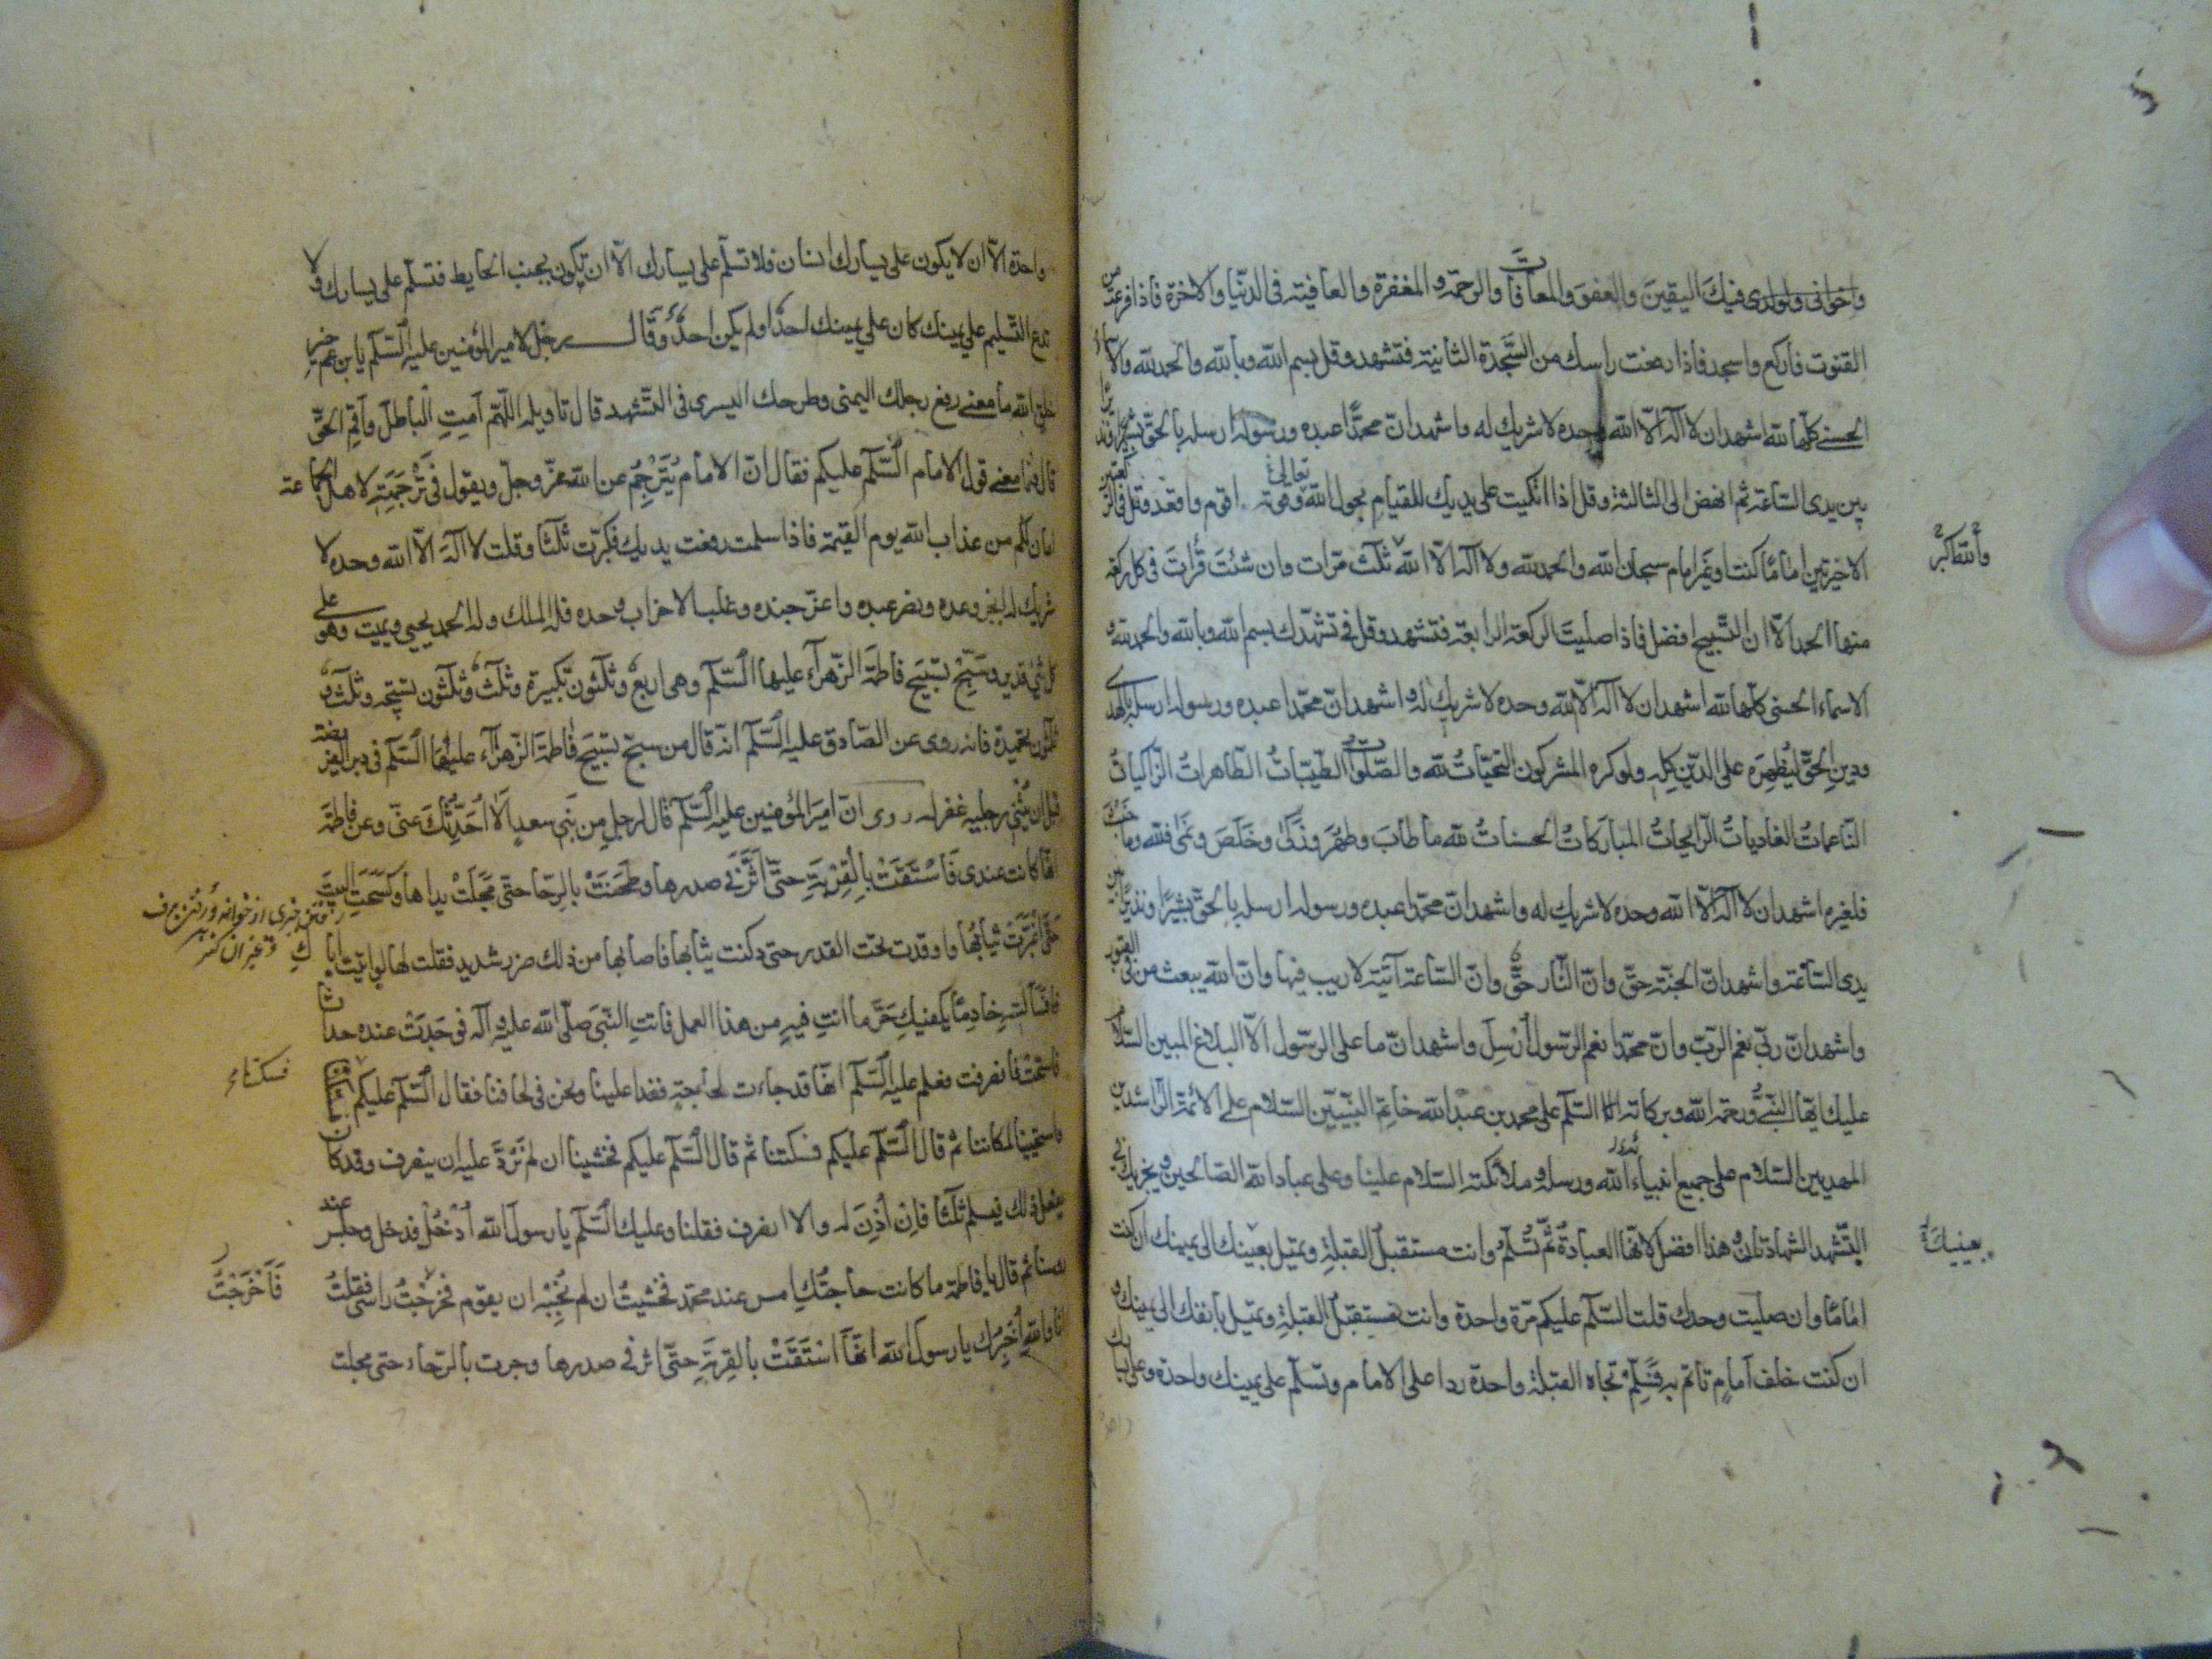 واخوانی ولوالدی فیك الیقین والعفو والمعافاة والرحمة والمغفرة والعافیة فی الدنیا والاخرة فاذا فرغت من
القنوت فارکع واسجد فاذا رفعت راسك من السجدة الثانیة فتشهد وقل بسم الله وبالله والحمد لله والاسماء
الحسنی کلها لله اشهد ان لا اله الا الله وحده لا شریك له واشهد ان محمدا عبده ورسوله ارسله بالحق بشیرا ونذیرا
بین یدی الساعة ثم انهض الی الثالثة وقل اذا اتکیت علی یدیك للقیام بحول الله تعالی وقوته اقوم واقعد وقل فی الرکعتین
الاخیرتین اماما کنت او غیر امام سبحان الله والحمد لله ولا اله الا الله ثلث مرات وان شئت قرات فی کل رکعة
والله اکبر
منها الحمد الا ان التسبیح افضل فاذا صلیت الرکعة الرابعة فتشهد وقل فی تشهدك بسم الله وبالله والحمد لله و
الاسماء الحسنی کلها لله اشهد ان لا اله الا الله وحده لا شریك له واشهد ان محمدا عبده ورسوله ارسله بالهدی
ودین الحق لیظهره علی الدین کله ولو کره المشرکون التحیات لله والصلوات الطیبات الطاهرات الزاکیات
الناعمات الغادیات الرایحات المبارکات الحسنات لله ما طاب وطهر وزکی وخلص ونمی فلله وما خبث
فلغیره اشهد ان لا اله الا الله وحده لا شریك له واشهد ان محمدا عبده ورسوله ارسله بالحق بشیرا ونذیرا بین
یدی الساعة واشهد ان الجنة حق وان النار حق وان الساعة آتیة لا ریب فیها وان الله یبعث من فی القبور
واشهد ان ربی نعم الرب وان محمدا نعم الرسول ارسل واشهد ان ما علی الرسول الا البلاغ المبین السلام
علیك ایها النبی ورحمة الله وبرکاته السلم علی محمد بن عبد الله خاتم النبیین السلام علی الائمة الراشدین
المهدیین السلام علی جمیع انبیاء الله ورسله وملائکته السلام علینا وعلی عباد الله الصالحین ویجزیك فی
التشهد الشهادتان وهذا افضل لانها العبادة ثم تسلم وانت مستقبل القبلة وتمیل بعینك الی یمینك ان کنت
بعینیك
اماما وان صلیت وحدك قلت السلم علیکم مرة واحدة وانت مستقبل القبلة وتمیل بانفك الی یمینك و
ان کنت خلف امام تاتم به فسلم تجاه القبلة واحدة ردا علی الامام وتسلم علی یمینك واحدة وعلی یسارك
واحدة الا ان لا یکون علی یسارك انسان فلا تسلم علی یسارك الا ان تکون بجنب الحایط فتسلم علی یسارك ولا
تدع التسلیم علی یمینك کان علی یمینك احد او لم یکن احد وقال رجل لامیر المؤمنین علیه السلم یا بن عم خیر
خلق الله ما معنی رفع رجلك الیمنی وطرحك الیسری فی التشهد قال تاویله اللهم امت الباطل واقم الحق
قال فما معنی قول الامام السلم علیکم فقال ان الامام یترجم عن الله عز وجل ویقول فی ترجمته لاهل الجماعة
امان لکم من عذاب الله یوم القیمة فاذا سلمت رفعت یدیك فکبرت ثلثا وقلت لا اله الا الله وحده لا
شریك له انجز وعده ونصر عبده واعز جنده وغلب الاحزاب وحده فله الملك وله الحمد یحیی ویمیت وهو علی
کل شئ قدیر وسبح تسبیح فاطمة الزهراء علیها السلم وهی اربع وثلثون تکبیرة وثلث وثلثون تسبیحة وثلث و
ثلثون تحمیدة فانه روی عن الصادق علیه السلم انه قال من سبح تسبیح فاطمة الزهراء علیها السلم فی دبر الفریضة
قبل ان یثنی رجلیه غفر له روی ان امیر المؤمنین علیه السلم قال لرجل من بنی سعد الا احدثك عنی وعن فاطمة
انها کانت عندی فاستقت بالقربة حتی اثر فی صدرها وطحنت بالرحا حتی مجلت یداها وکسحت البیت
حتی اغبرت ثیابها واوقدت تحت القدر حتی دکنت ثیابها فاصابها من ذلك ضر شدید فقلت لها لو اتیت اباك
فسالته خادما یکفیك حر ما انت فیه من هذا العمل فاتت النبی صلی الله علیه واله فوجدت عنده حداثا
فاستحت فانصرفت فعلم علیه السلم انها قد جاءت لحاجة فغدا علینا ونحن فی لحافنا فقال السلم علیکم فسکتنا
فسکتنا
واستحیینا لمکاننا ثم قال السلم علیکم فسکتنا ثم قال السلم علیکم فخشینا ان لم نرد علیه ان ینصرف وقد کان
یفعل ذلك فیسلم ثلثا فان اذن له والا انصرف فقلنا وعلیك السلم یا رسول الله ادخل فدخل وجلس عند
رؤسنا ثم قال یا فاطمة ما کانت حاجتك امس عند محمد فخشیت ان لم نجبه ان یقوم فخرجت راسی فقلت
فاخرجت
انا والله اخبرك یا رسول الله انها استقت بالقربة حتی اثر فی صدرها وجرت بالرحاء حتی مجلت